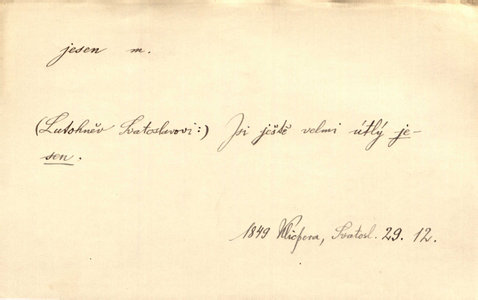 jesen m.
(Lutohněv Svatoslavovi:) Jsi ještě velmi útlý je-
sen.
1849 Klicpera, Svatosl. 29. 12.